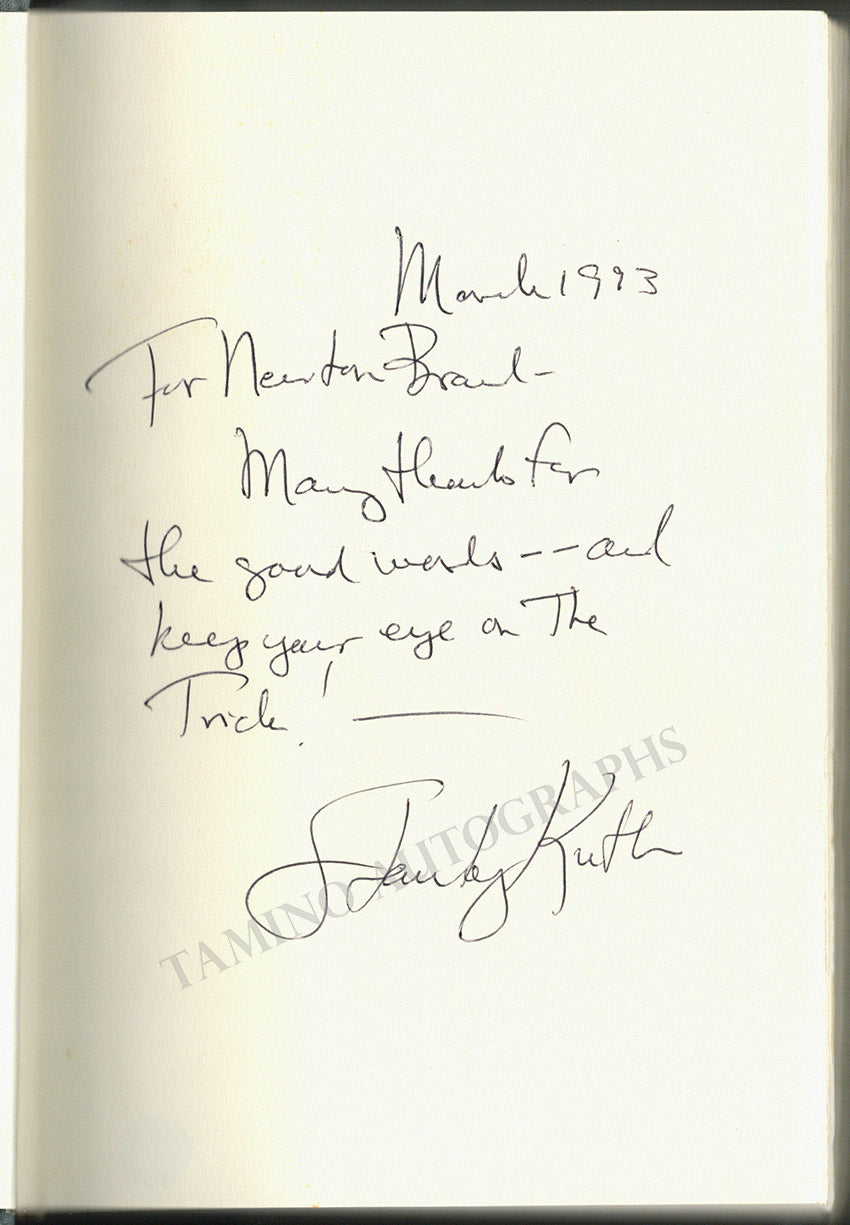 March 1993
For Newton Brand-
Many thanks for
the good words -- and
keep your eye on The
Trick! —
Stanley Kuth
TAMINO AUTOGRAPHS